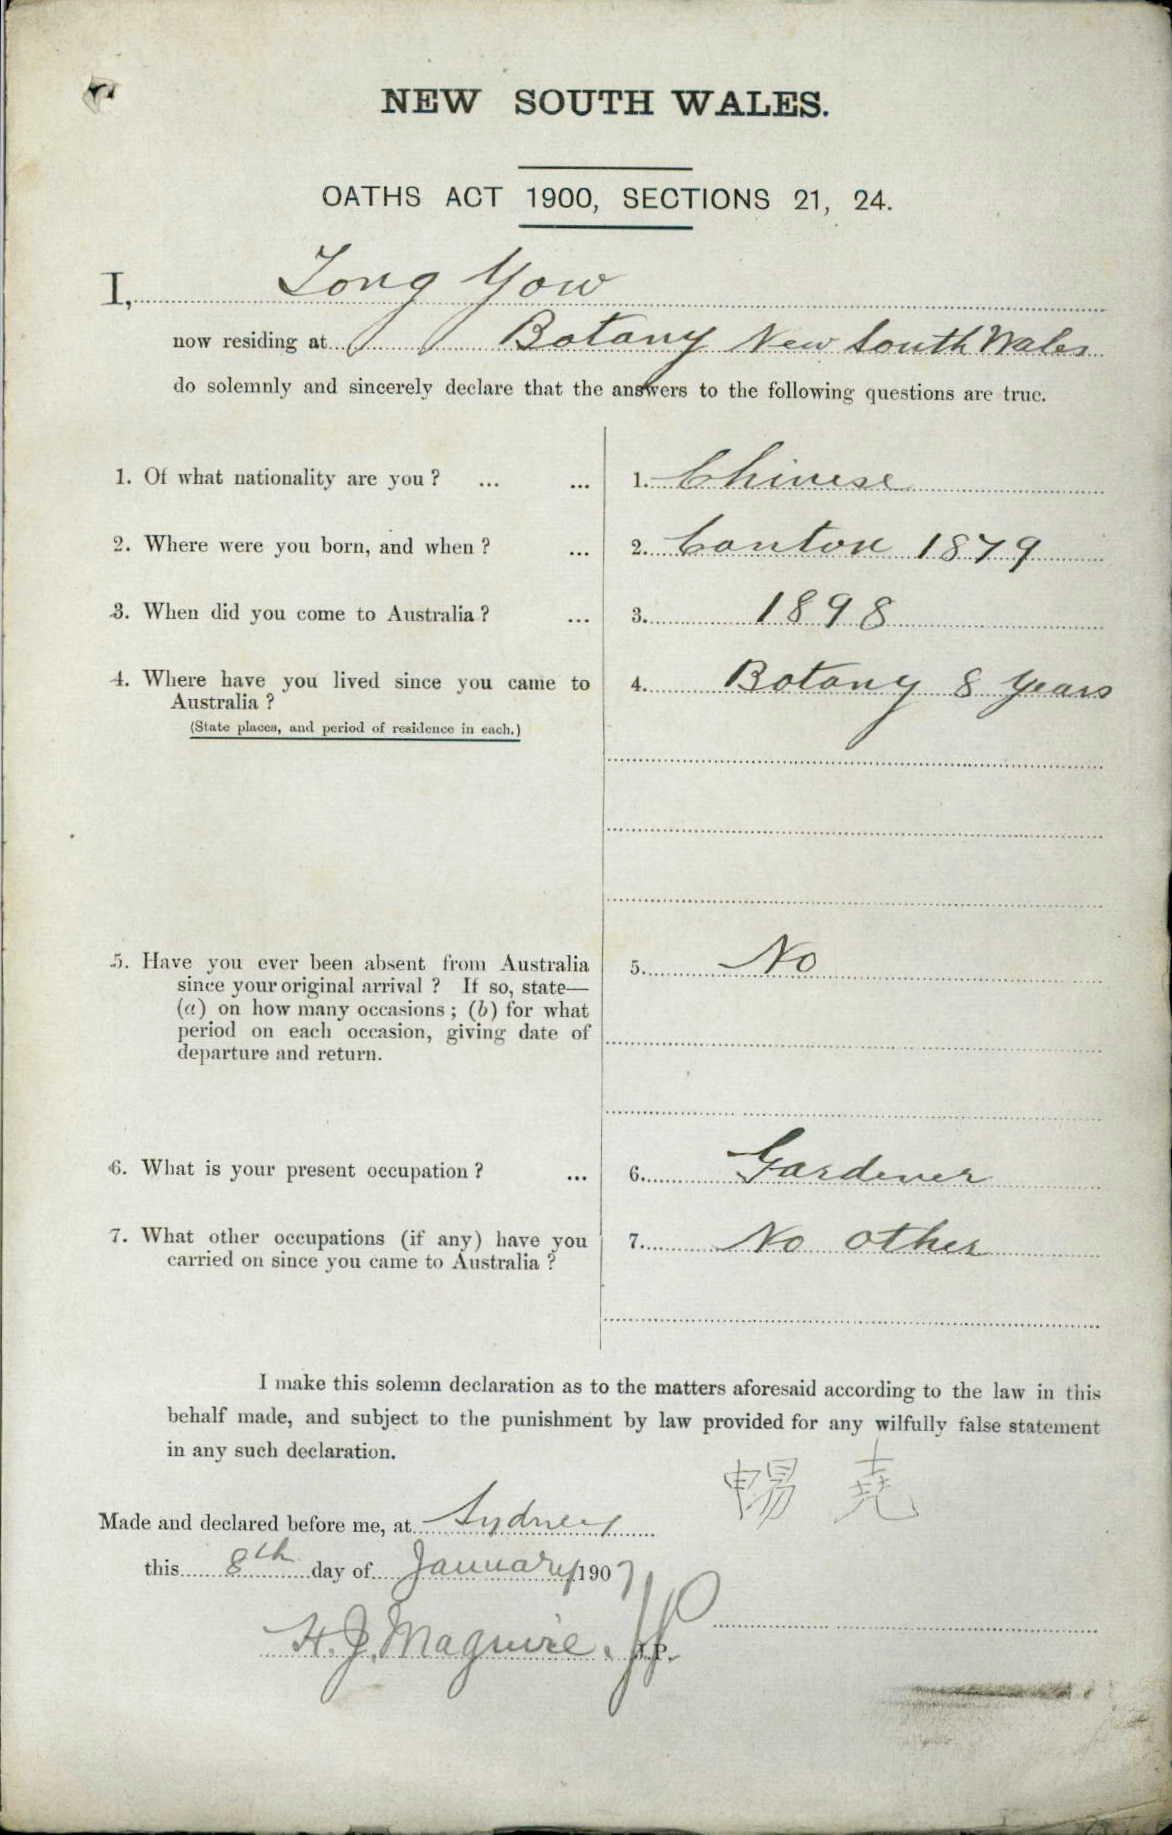 NEW SOUTH WALES.
OATHS ACT 1900, SECTIONS 21, 24.
I, Tong Yow
now residing at Botany New South Wales
do solemnly and sincerely declare that the answers to the following questions are true.
1. Of what nationality are you? ... ... 1. Chinese
2. Where were you born, and when? ... 2. Canton 1879
3. When did you come to Australia? ... 3. 1898
4. Where have you lived since you came to 4. Botany 8 years
Australia?
(State places, and period of residence in each.)
5. Have you ever been absent from Australia 5. No
since your original arrival? If so, state—
(a) on how many occasions; (b) for what
period on each occasion, giving date of
departure and return.
6. What is your present occupation? ... 6. Gardener
7. What other occupations (if any) have you 7. No other
carried on since you came to Australia?
I make this solemn declaration as to the matters aforesaid according to the law in this
behalf made, and subject to the punishment by law provided for any wilfully false statement
in any such declaration.
暢 堯
Made and declared before me, at Sydney
this 8th day of January 1907
H. J. Maguire. JP J.P.